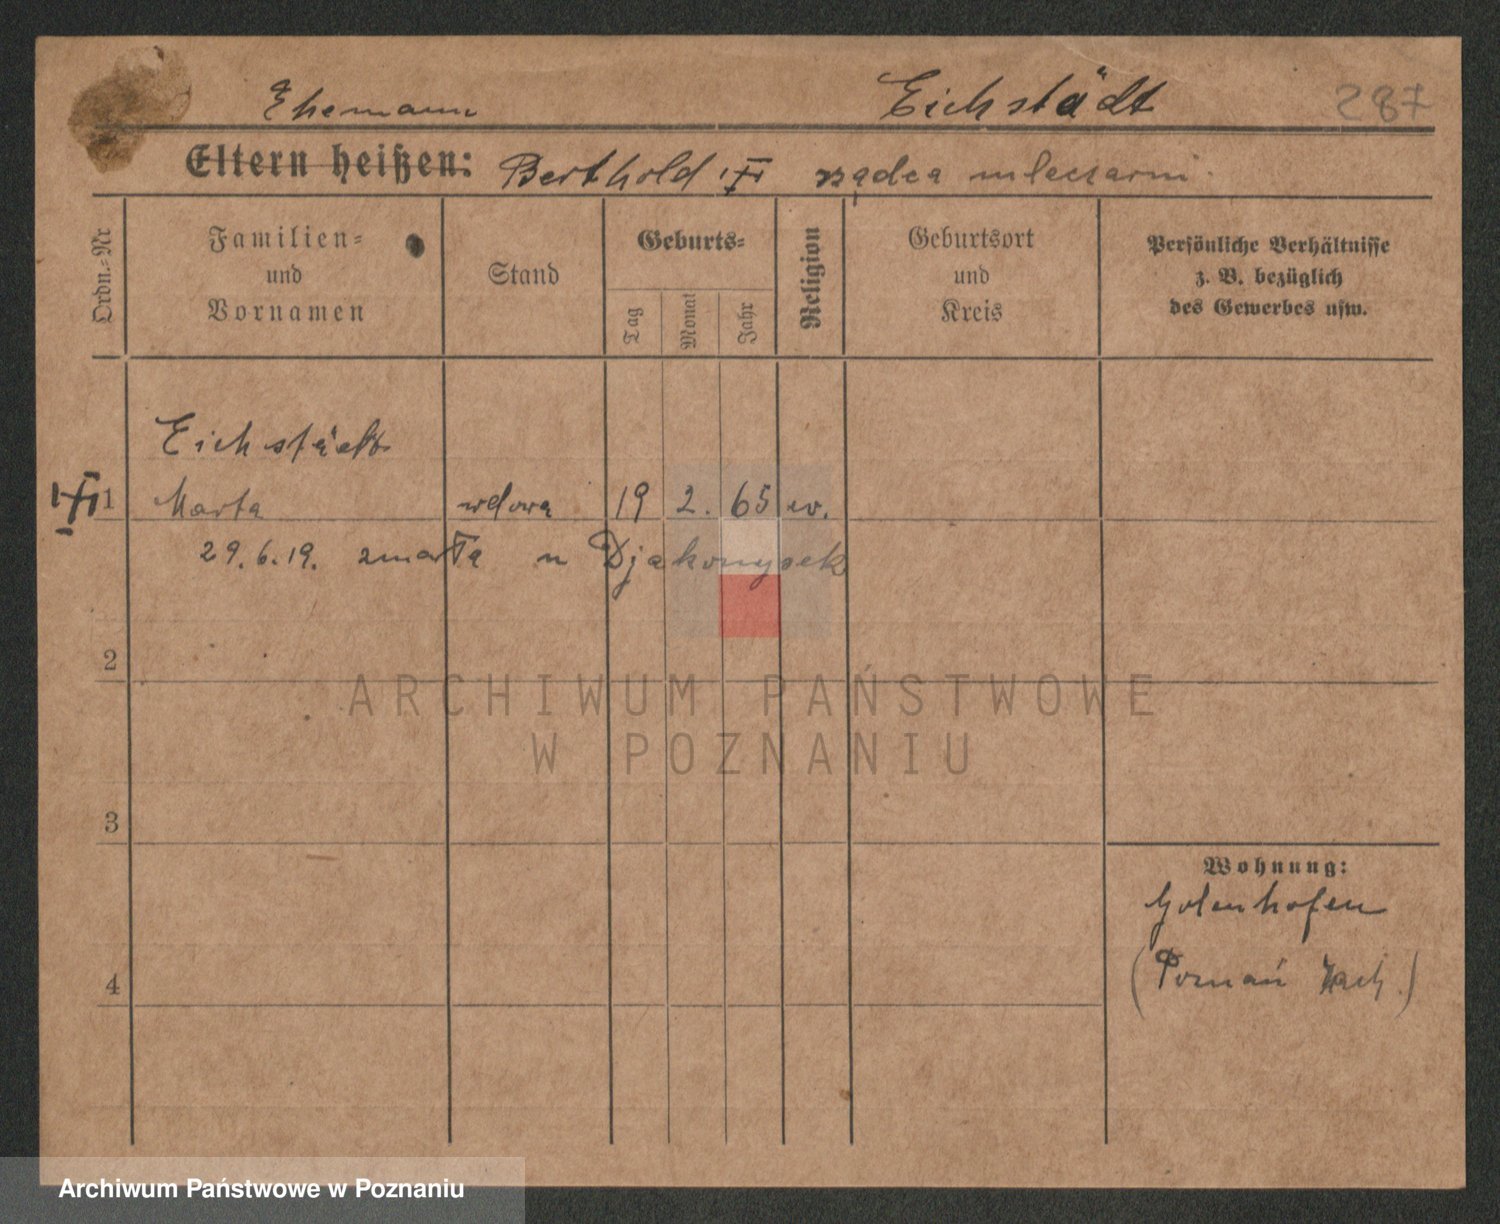 Ehemann Eichstädt 287
Eltern heißen: Berthold rządca mleczarni
Ordn.-Nr
Familien- und Vornamen
Stand
Geburts-
Tag Monat Jahr
Religion
Geburtsort und Kreis
Persönliche Verhältnisse
z. B. bezüglich
des Gewerbes usw.
Eichstädt
1 Marta wdowa 19 2. 65 ew.
29.6.19. zmarła w
2
3
4
Wohnung:
Golenhofen
(Poznań Zach.)
ARCHIWUM PAŃSTWOWE
W POZNANIU
Archiwum Państwowe w Poznaniu